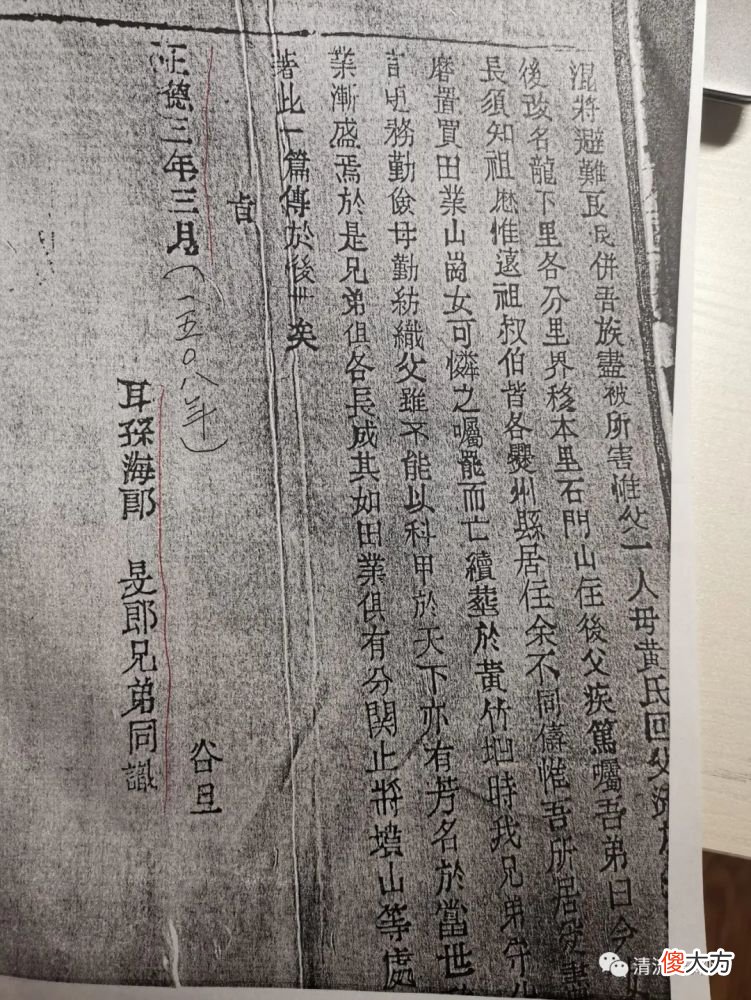 混將避難民併吾族盡被所害惟父一人母黄氏回父
後改名龍下里各分里界移本里石門山住後父疾篤囑吾弟曰今
長須知祖歷惟遠祖叔伯皆各縣州縣居住余不同儔惟吾所居
磨置買田業山崗女可憐之囑罷而亡續塟於黄竹地時我兄弟
務勤儉母勤紡織父雖不能以科甲於天下亦有芳名於當世
業漸盛焉於是兄弟俱各長成其如田業俱有分関止將墳山等處
著此一篇傳於後世矣
旨
正德三年三月(一五〇八年)
谷旦
耳孫海郎 旻郎兄弟同識
清流
傻大方